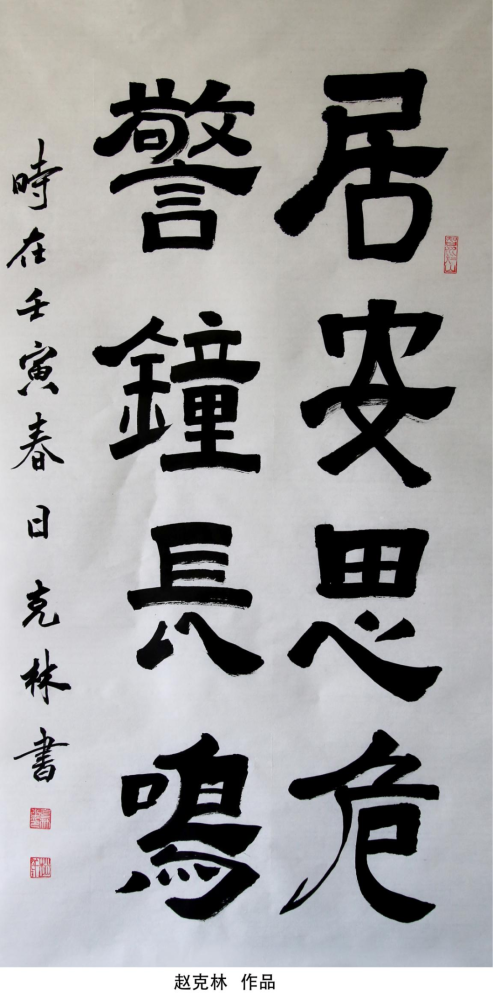 居安思危
警鐘長鳴
時在壬寅春日克林書
赵克林 作品